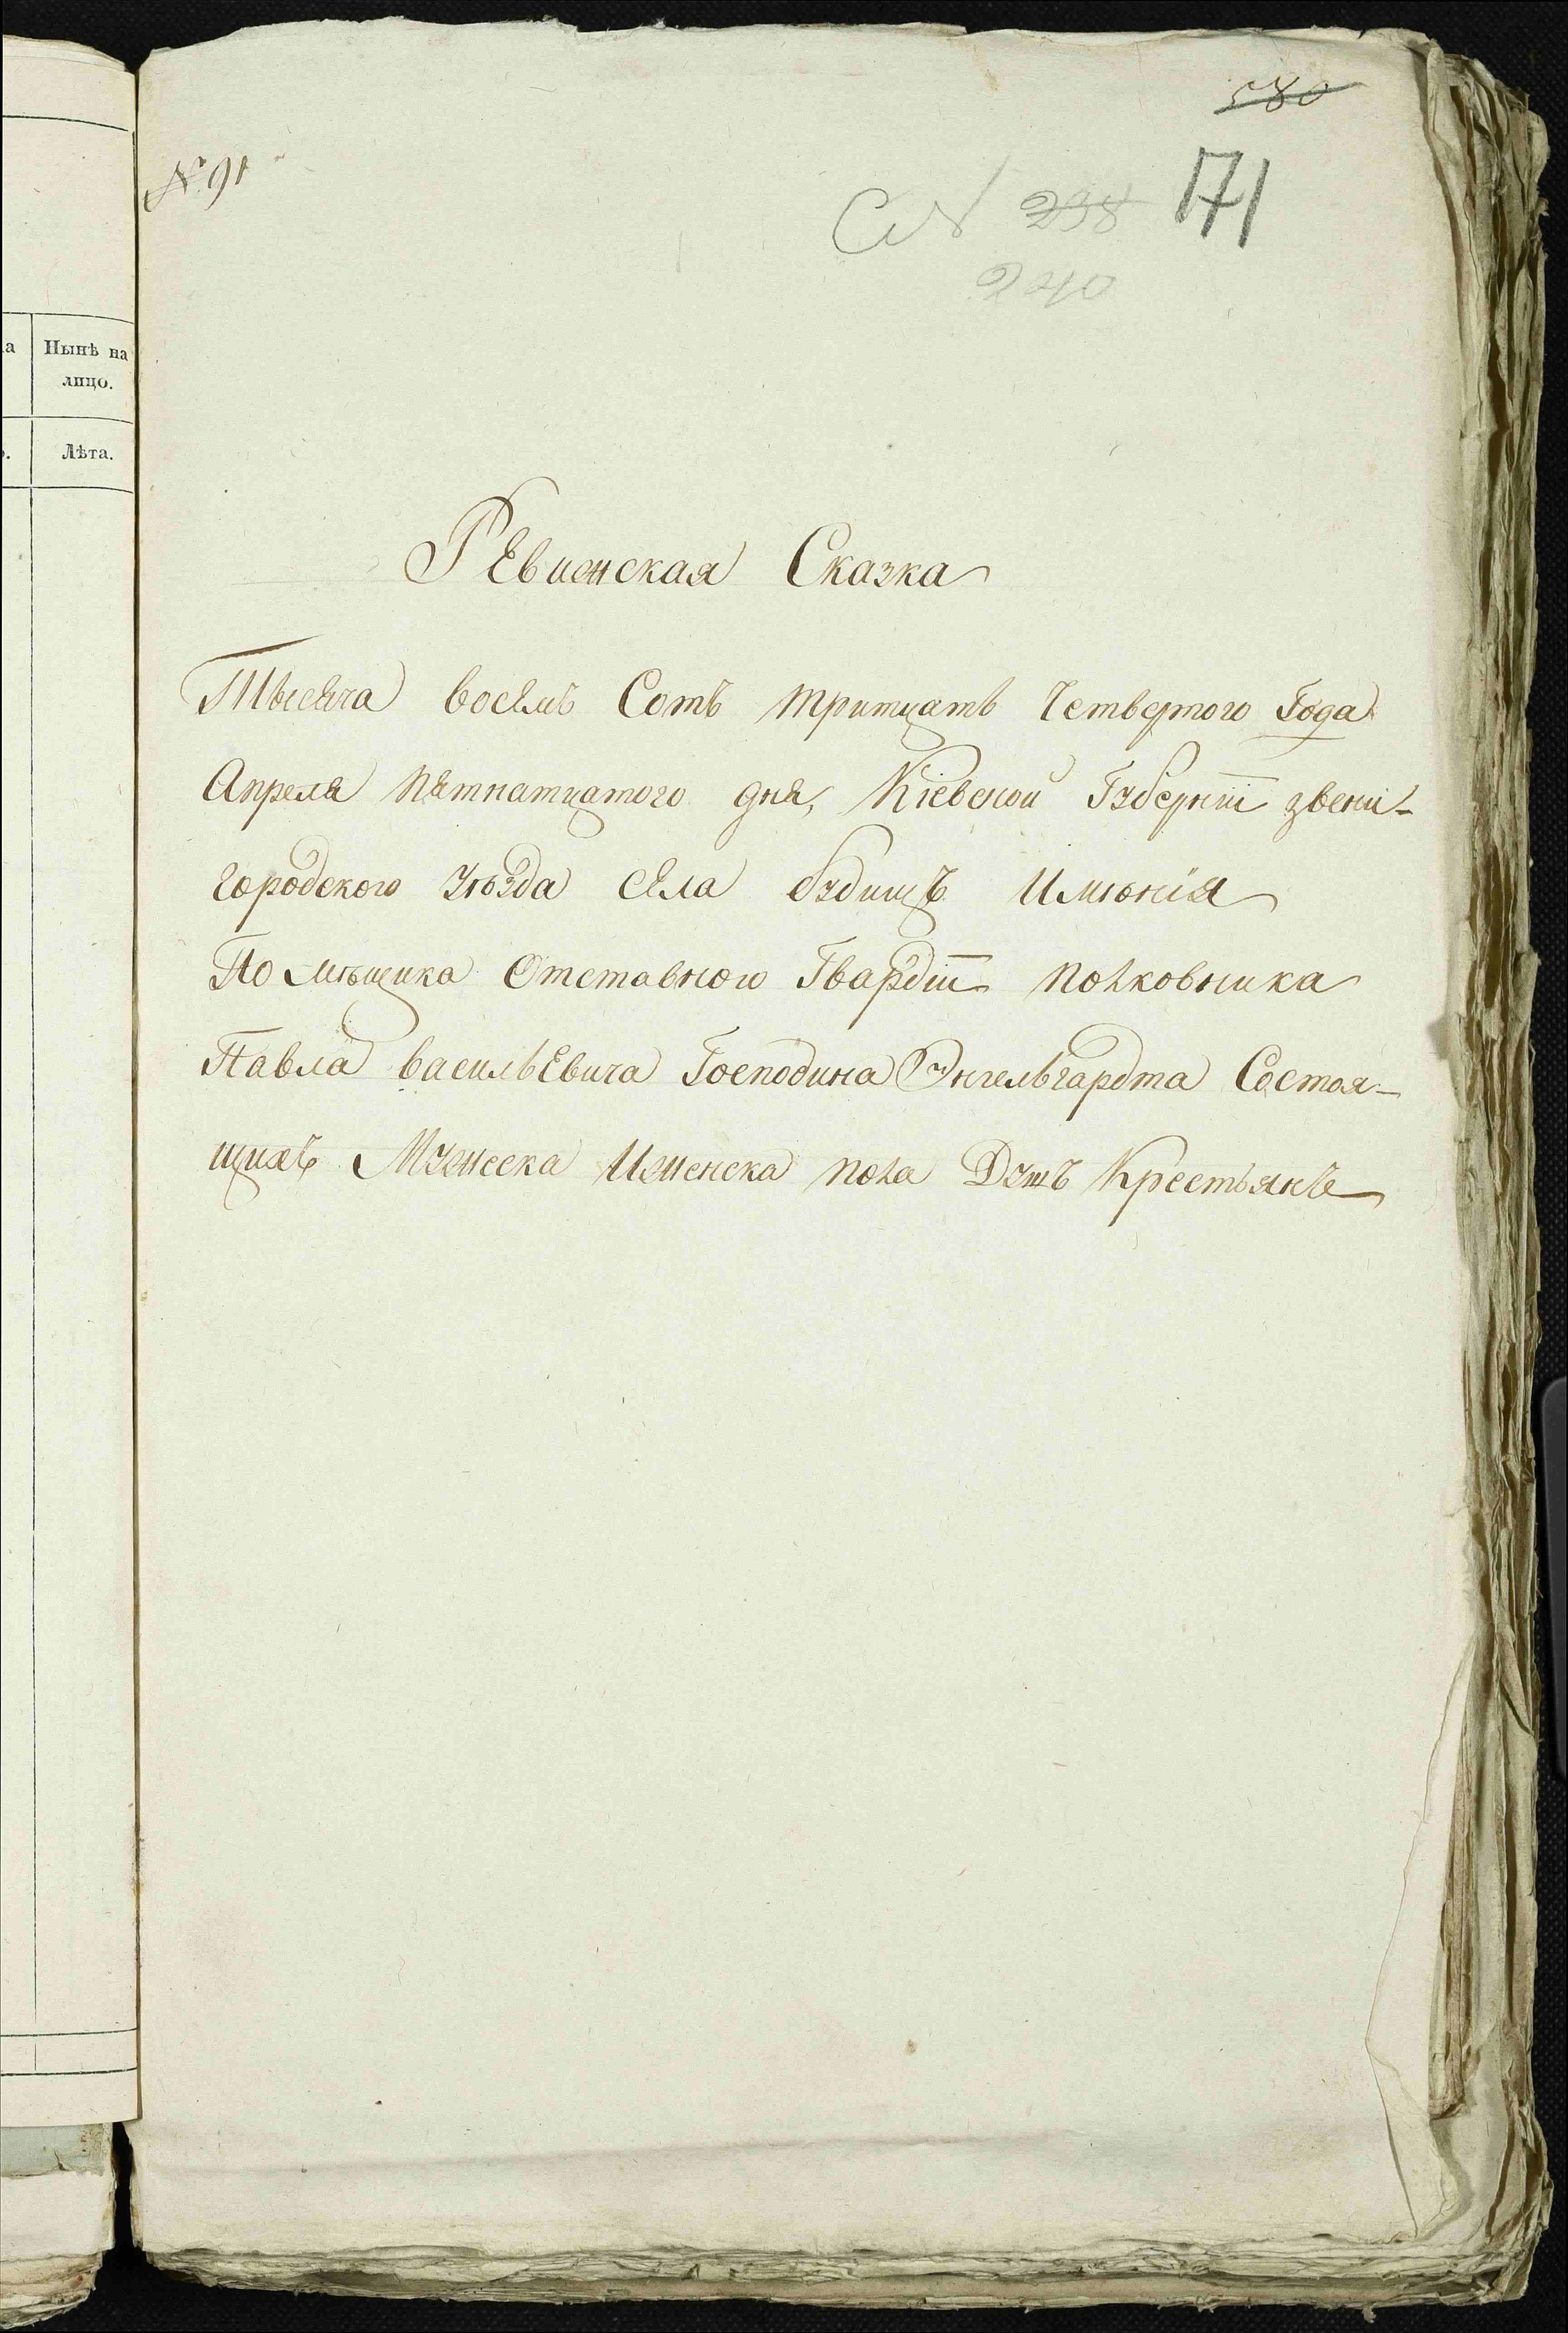 580
№ 91
238 171
240
а Нынѣ на
лицо.
Лѣта.
РЕвижская Сказка
Тысеча восемь Сотъ тритцать Четвертого Года
Апреля пятнатцатого дня, Кіевской Губерніи звени-
городского уѣзда села будищъ Имѣнія
Помѣщика Отставного Гвардіи полковника
Павла васильЕвича Господина Энгельгардта Состоя-
щихъ Мужеска Иженска пола Душъ Крестьянъ